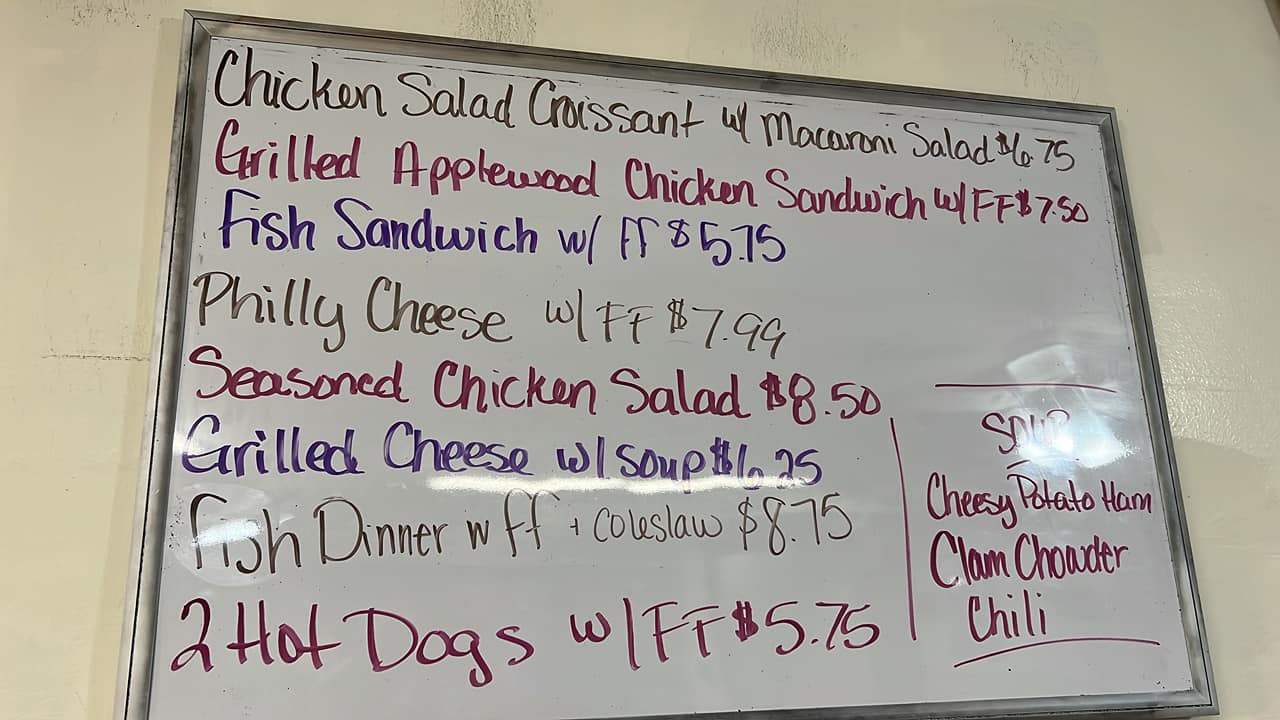 Chicken Salad Croissant w/ Macaroni Salad $6.75
Grilled Applewood Chicken Sandwich w/ FF $7.50
Fish Sandwich w/ ff $5.75
Philly Cheese w/ FF $7.99
Seasoned Chicken Salad $8.50
Grilled Cheese w/ soup $6.25
Fish Dinner w ff + coleslaw $8.75
2 Hot Dogs w/ FF $5.75
Soup
Cheesy Potato Ham
Clam Chowder
Chili